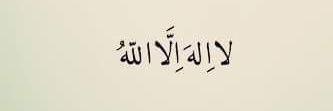 لا اِلهَ اِلَّا اللّهُ